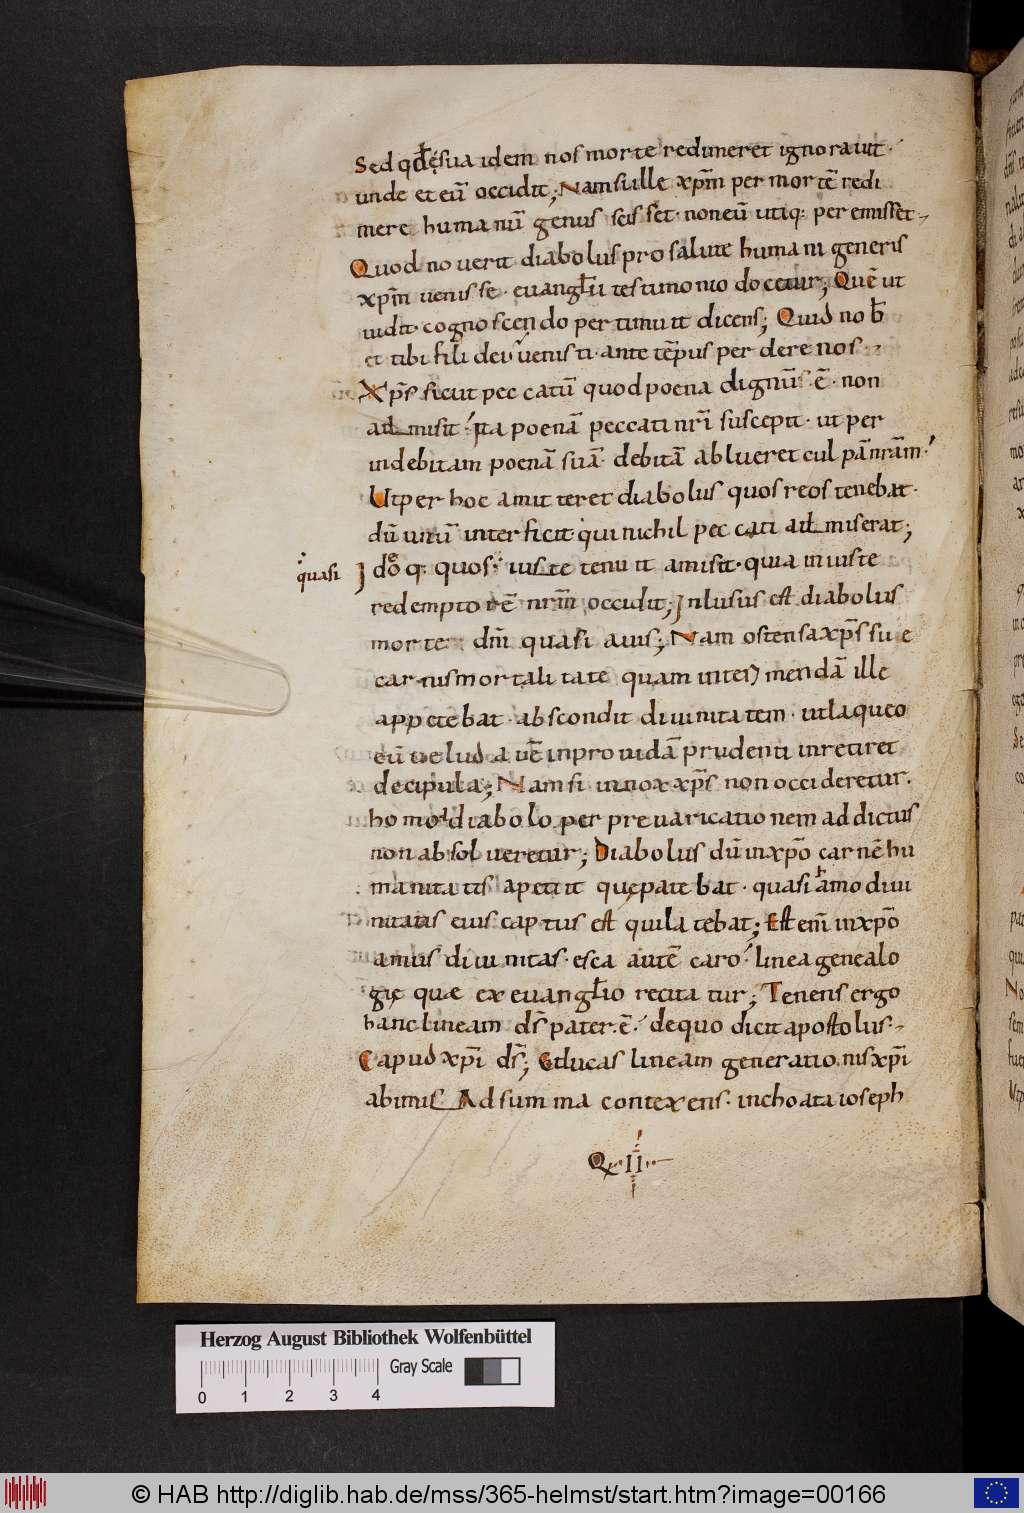 Sed qđ ęsua idem nos morte redimeret ignorauit·
unde et eū occidit; Nam si ille xp̄m per mortē redi
mere humanū genus scisset· non eū utiq: peremisset
Quod nouerit diabolus pro salute humani generis
xp̄m uenisse· euangłii testimonio docetur; Quē ut
uidit· cognoscendo pertimuit dicens; Quid nob̄
et tibi fili dei uenisti· ante tēpus perdere nos
Xp̄s sicut peccatū quod poena dignū· ē· non
admisit· ita poenā peccati nr̄i suscepit· ut per
indebitam poenā suā· debitā ablueret culpā nr̄am·
Ut per hoc amitteret diabolus quos reos tenebat·
dū unū interficit· qui nichil peccati admiserat;
quasi
Ideoq: quos iuste tenuit amisit· quia iniuste
redemptorē nr̄m occidit; Inlusus est diabolus
morte dn̄i quasi auis; Nam ostensa xp̄s suę
carnis mortalitate quam interimendā ille
appetebat· abscondit diuinitatem· ut laqueo
eū uelud auē inprouidā prudenti inretiret
decipula; Nam si innox xp̄s non occideretur·
homo diabolo per preuaricationem addictus
non absolueretur; Diabolus dū in xp̄o carnē hu
manitatis apetiit quę patebat· quasi amo diui
nitatis eius captus est qui latebat; Est enī in xp̄o
amus diuinitas· esca autē caro· linea genealo
gię quae ex euangłio recitatur; Tenens ergo
hanc lineam ds̄ pater· ē· de quo dicit apostolus·
Capud xp̄i ds̄; Et lucas lineam generationis xp̄i
ab imis Ad summa contexens· inchoat a ioseph
Q· II·
Herzog August Bibliothek Wolfenbüttel
Gray Scale
0 1 2 3 4
© HAB http://diglib.hab.de/mss/365-helmst/start.htm?image=00166